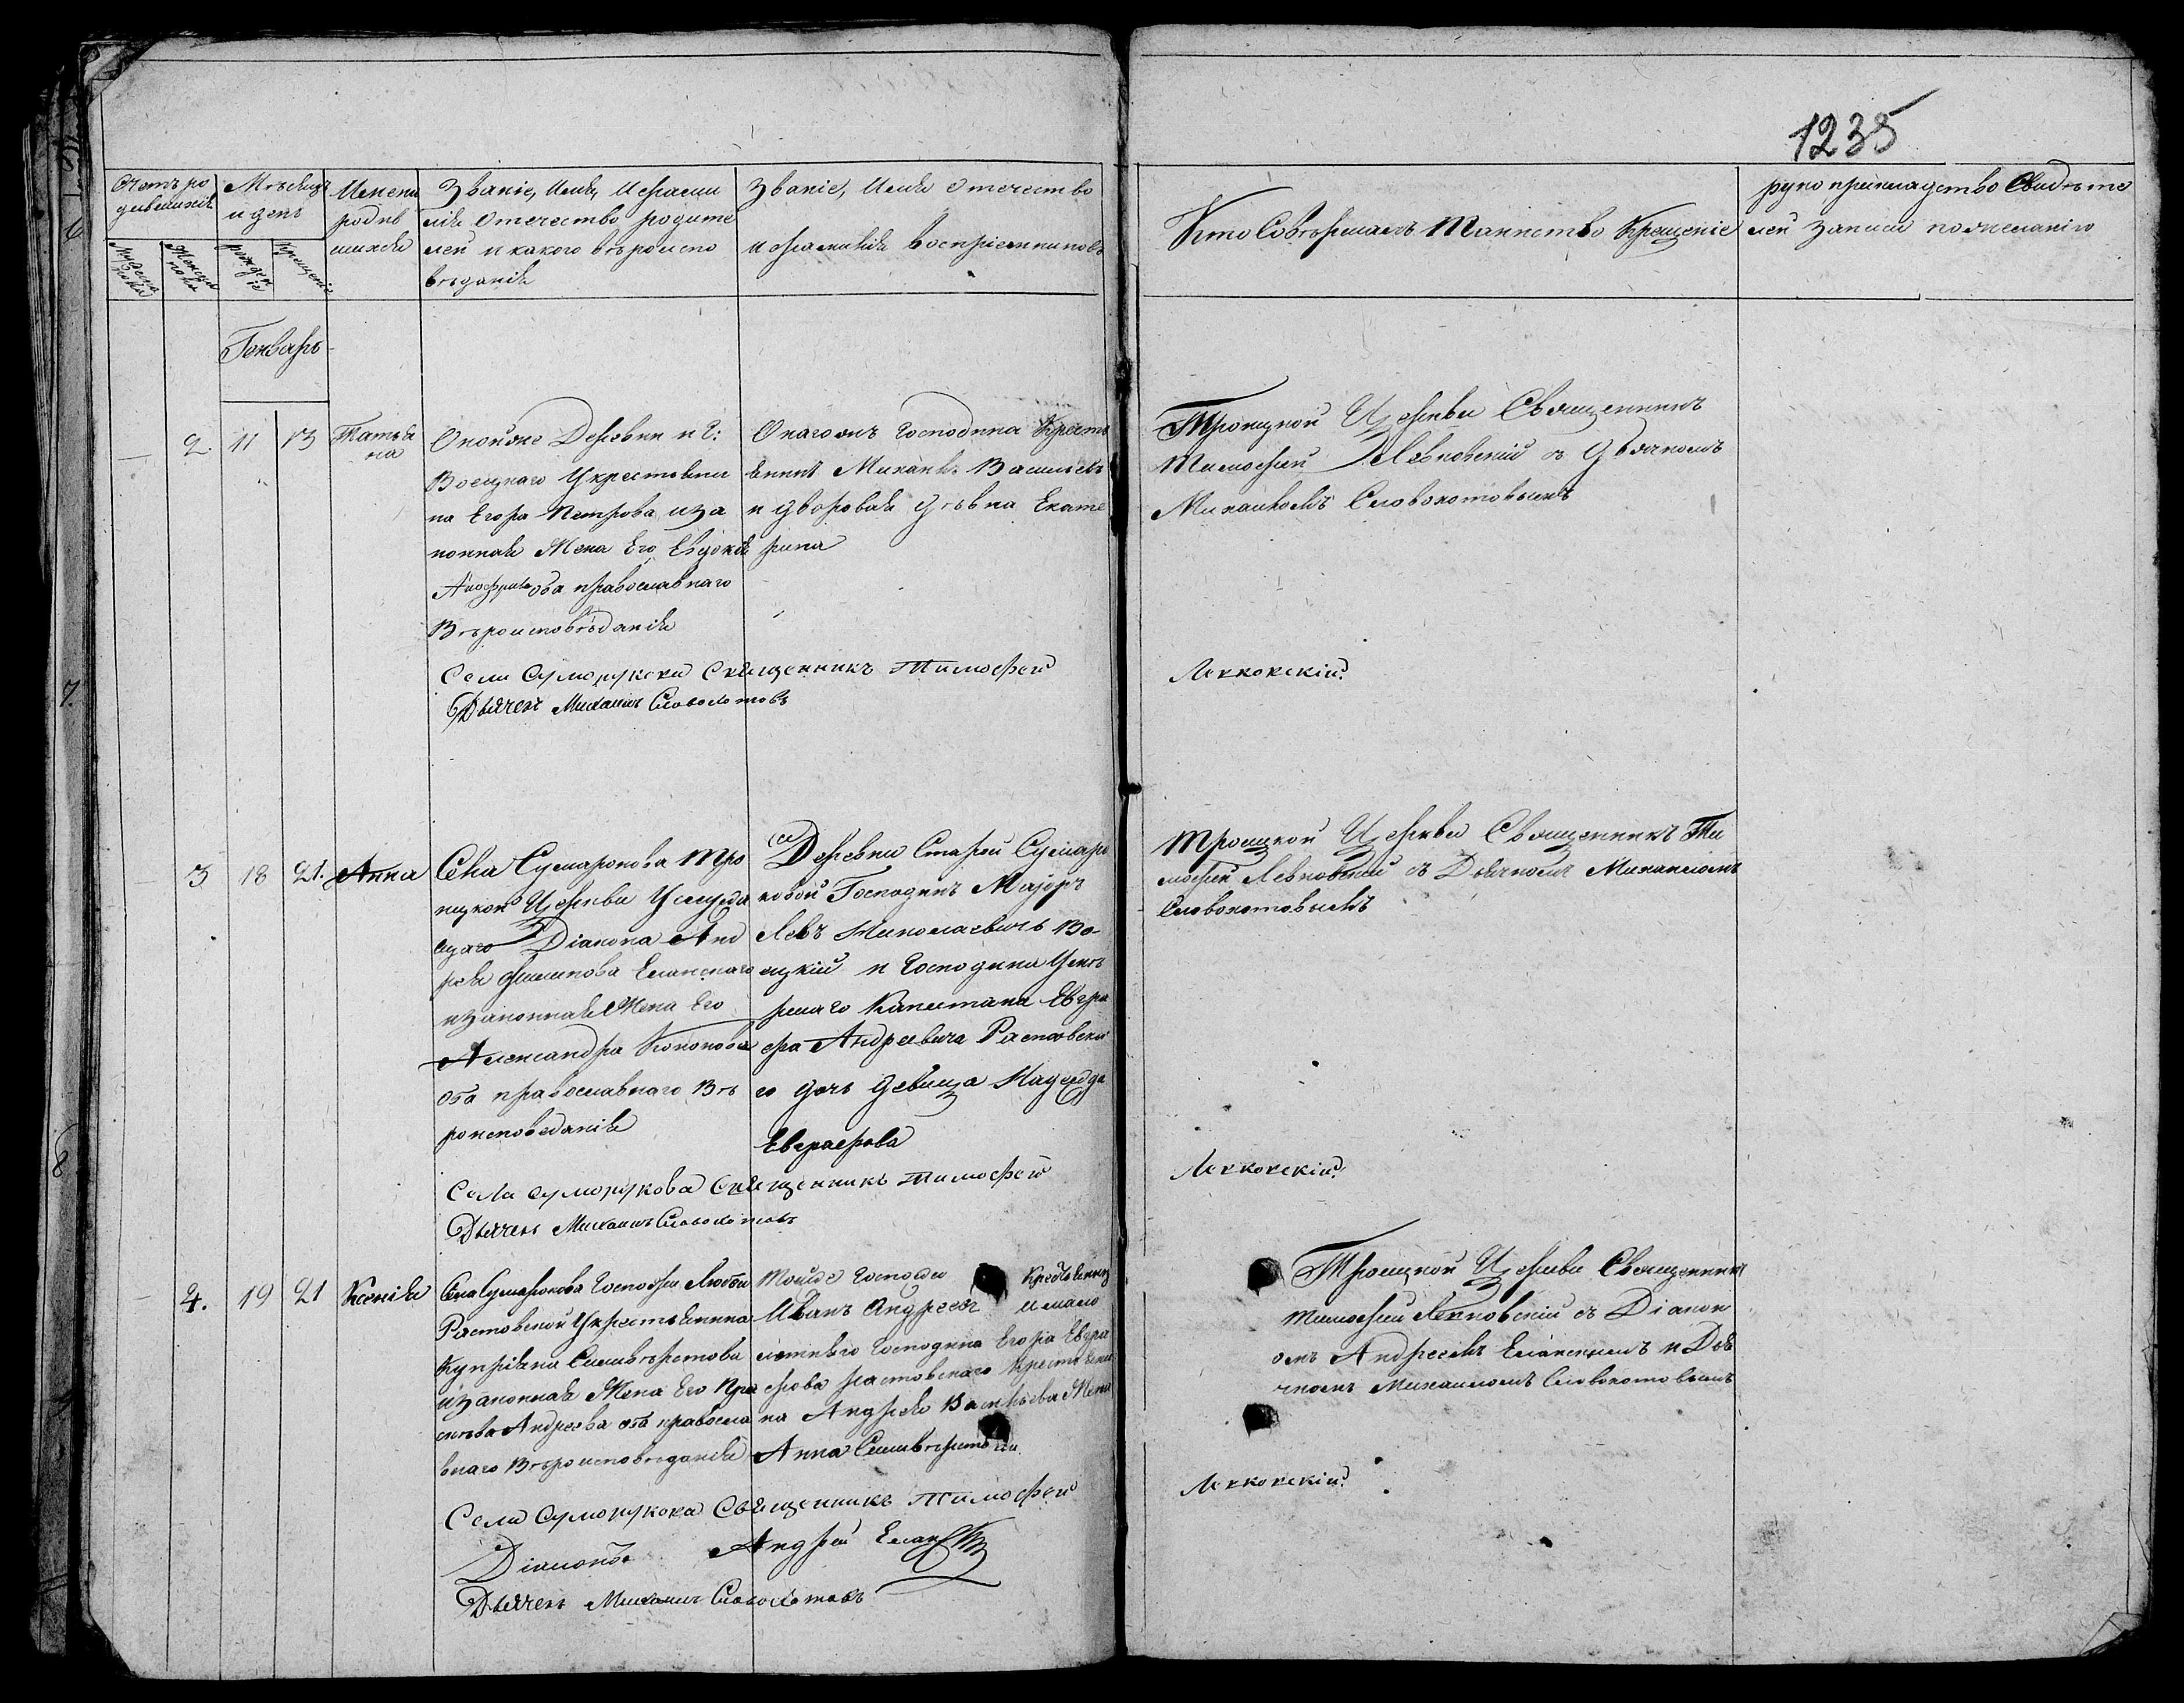 1235
Счетъ ро
дившихся
Мѣсяцъ
и день
Имена
родив
шихся
Званіе, Имя, и фамил
лія Отечество родите
лей и какого вѣроиспо
вѣданія
Званіе, Имя Отечество
и фамилія Воспріемниковъ
Кто Совершалъ Таинство Крещенія
рукоприкладство Свидѣте
лей записи по желанію
Мужеска
пола
Женска
пола
рожден
іе
Крещеніе
Генварь
2.
11
13
Татья
на
Оной же Деревни и Г:
Воецкаго Укрестьяни
на Егора Петрова иза
конная Жена Его Евдокія
оба православнаго
Вѣроисповѣданія
Онагожъ Господина Кресть
янинъ Михаилъ Васильевъ
и дворовая дѣвка Екате
рина
Троицкой Церкви Священникъ
Тимофей Левковскій съ Дьячкомъ
Михаиломъ Словохотовымъ
Села Суморукова Священникъ Тимофей
Левковскій.
Дьячекъ Михаилъ Словохотовъ
3
18
21.
Анна
Села Сумарокова Тро
ицкой Церкви Уседя
щаго Діакона Анд
рея Филипова Еланскаго
изаконная Жена Его
Александра Кононова
оба православнаго Вѣ
роисповеданія
Деревни Старой Сумаро
ковой Господинъ Маіоръ
Левъ Николаевичь Во-
ецкій и Господина Умер
шаго Капитана Евгра
фа Андреевича Растовска
го дочь девица Надежда
Евграфова
Троицкой Церкви Священникъ Ти
мофей Левковской съ Дьячкомъ Михаиломъ
Словохотовымъ
Села Суморукова Священникъ Тимофей
Левковскій.
Дьячекъ Михаилъ Словохотовъ
4.
19
21
Ксенія
Села Сумарокова Госпожи Любви
Растовской Укрестьянина
Купріяна Сильвѣрстова
изаконная Жена Его Пра
сковья Андреева оба правосла
внаго Вѣроисповѣданія
Тойже Госпожи Крестьянинъ
Иванъ Андреевъ и мало
летнего Господина Егора Евгра
фова Растовскаго Крестьяни
на Андрея Васильева Жена
Анна Сильвѣрстова
Троицкой Церкви Священникъ
Тимофей Левковскій съ Діакон
омъ Андреемъ Еланскимъ и Дья
чкомъ Михаиломъ Словохотовымъ
Села Суморукова Священникъ Тимофей
Левковскій.
Діаконъ Андрей Еланскій
Дьячекъ Михаилъ Словохотовъ